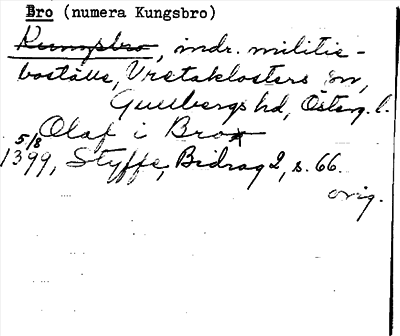 Bro (numera Kungsbro)
Kungsbro, indr. militie-
boställe, Vretaklosters sn,
Gullbergs hd, Österg. l.
Olaf i Bro
5/8
1399, Styffe, Bidrag 2, s. 66.
orig.